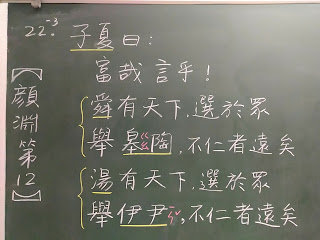 22.-3 子夏曰：
富哉言乎！
舜有天下，選於眾
舉皋陶，不仁者遠矣
湯有天下，選於眾
舉伊尹，不仁者遠矣
【顏淵第12】